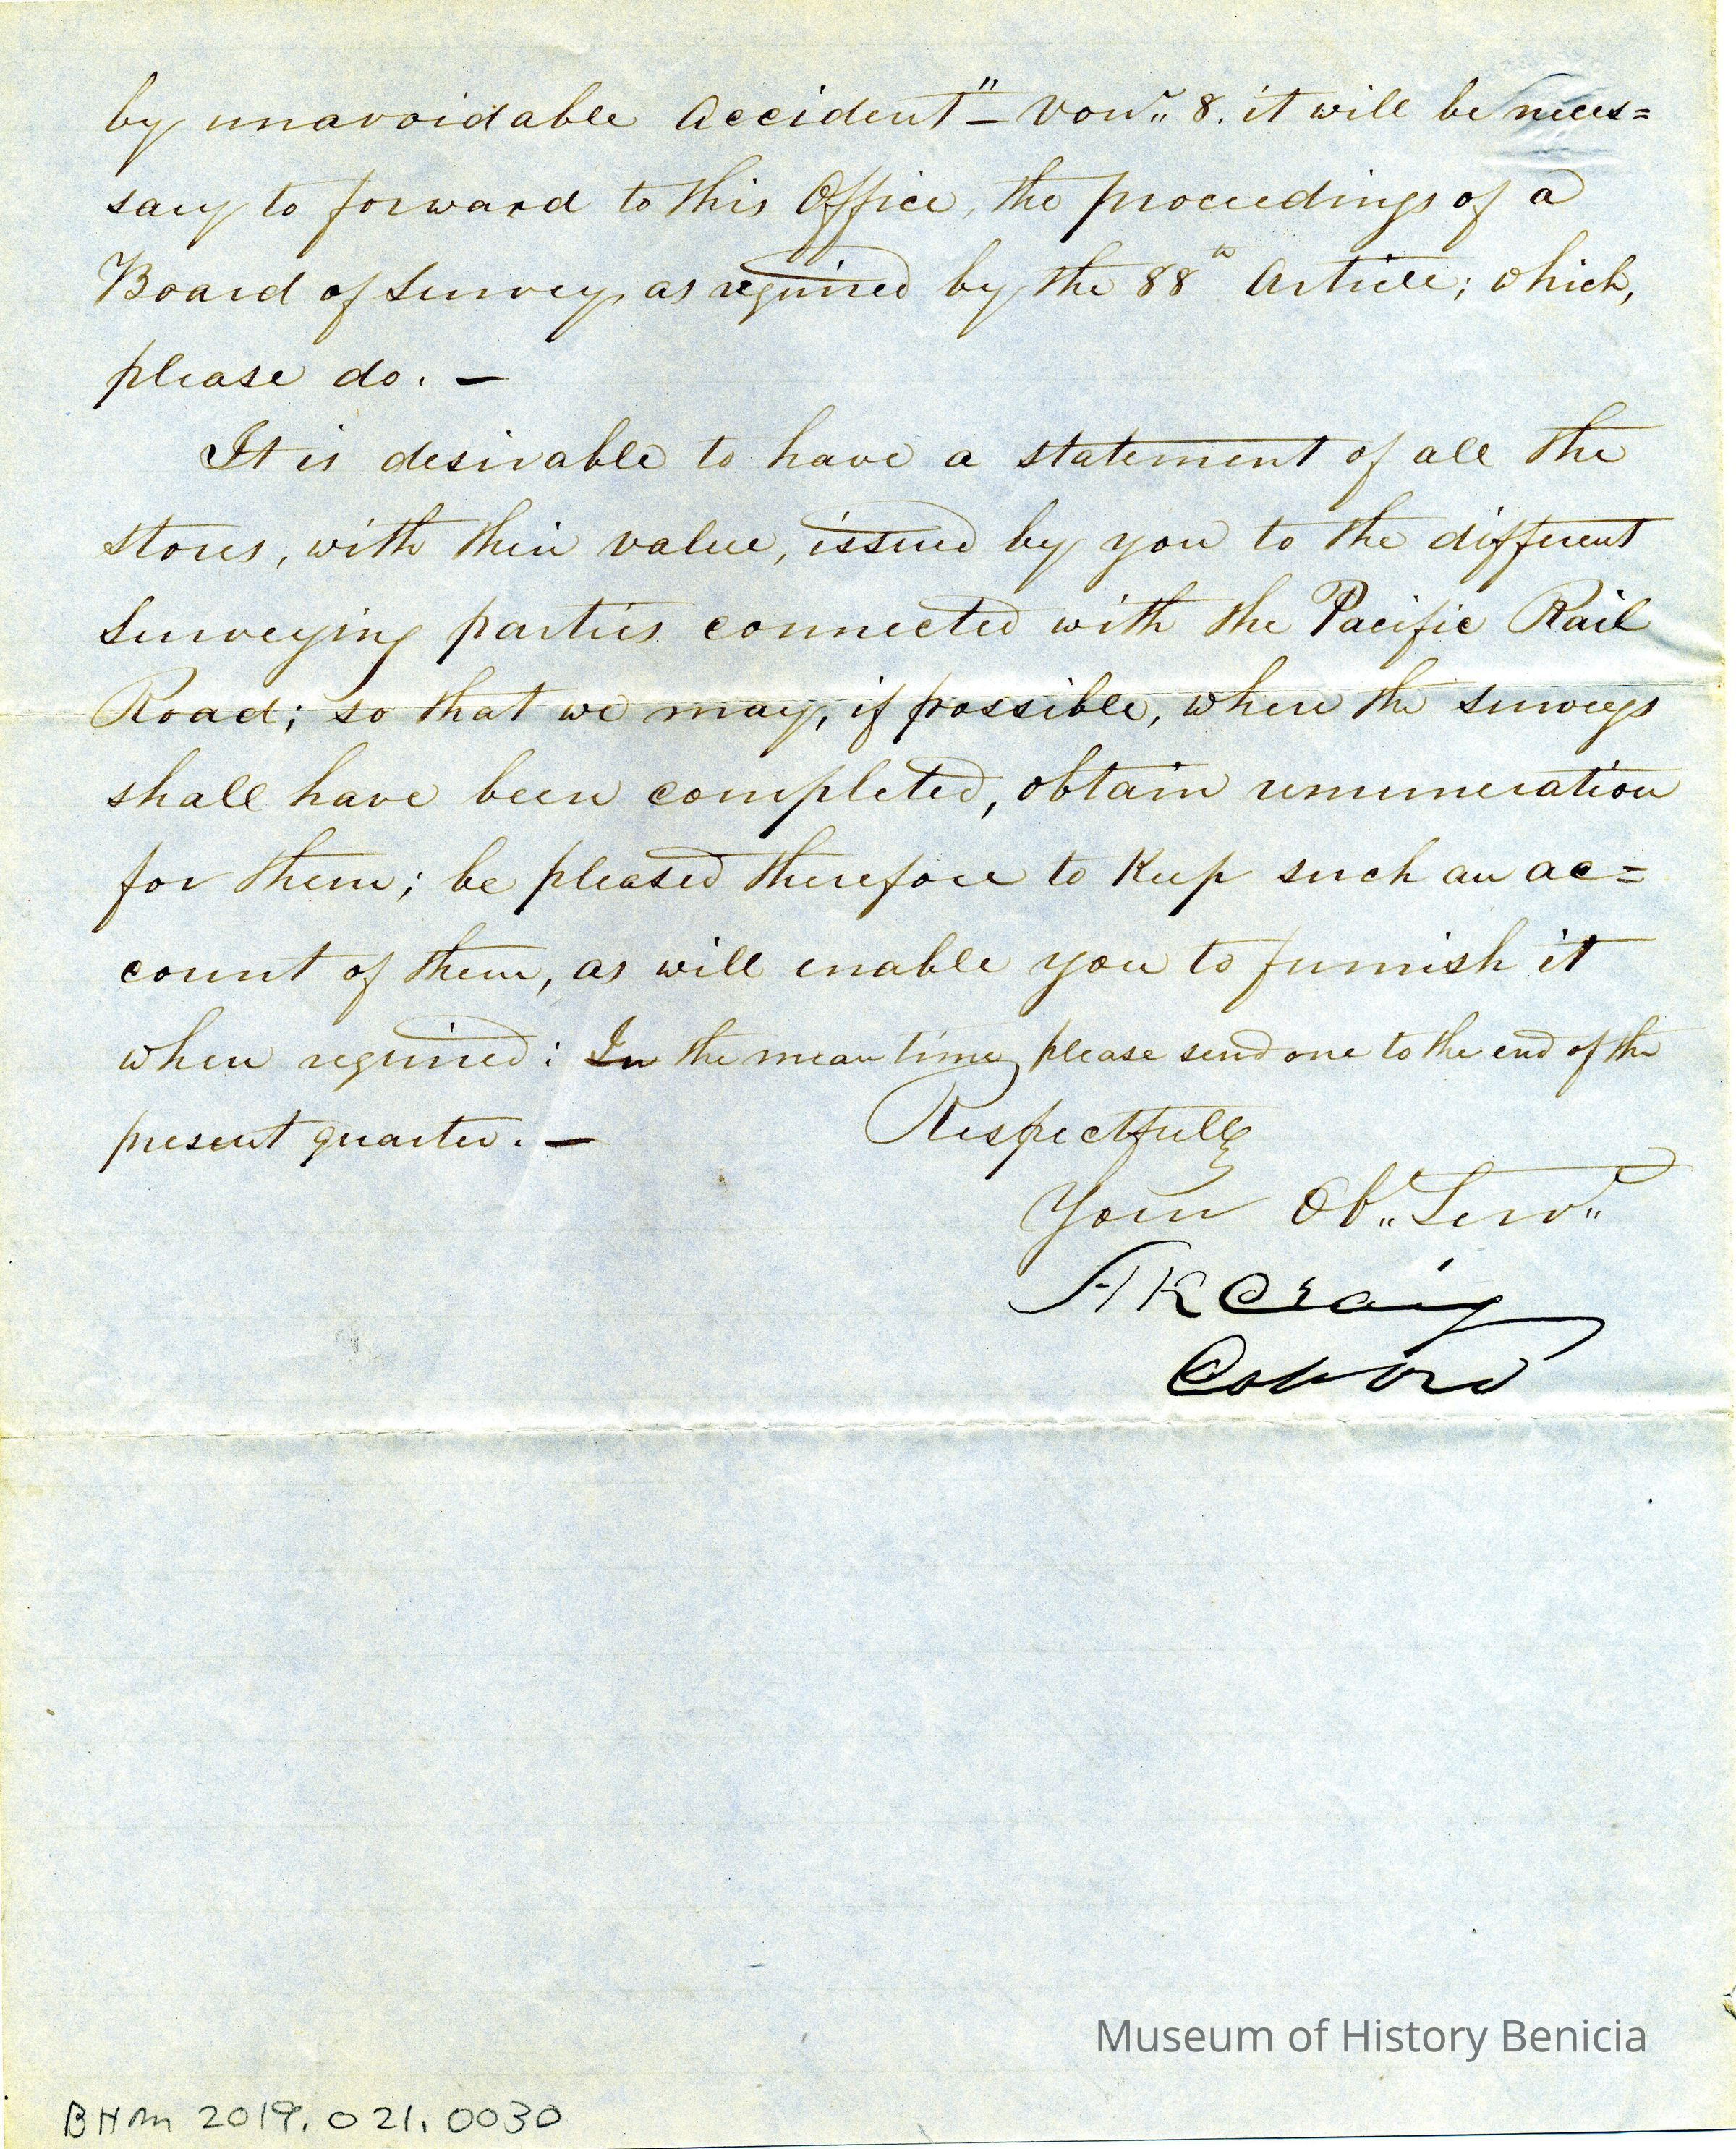 by unavoidable Accident" — Vou.r 8. it will be neces=
sary to forward to this Office, the proceedings of a
Board of Survey, as required by the 88th Article; which,
please do. —
It is desirable to have a statement of all the
stores, with their value, issued by you to the different
Surveying parties connected with the Pacific Rail
Road; so that we may, if possible, when the surveys
shall have been completed, obtain remuneration
for them; be pleased therefore to Keep such an ac=
count of them, as will enable you to furnish it
when required: In the mean time, please send one to the end of the
present quarter. —
Respectfully
Your Ob.. Serv..
HK Craig
Col Ord
Museum of History Benicia
BHM 2019.021.0030